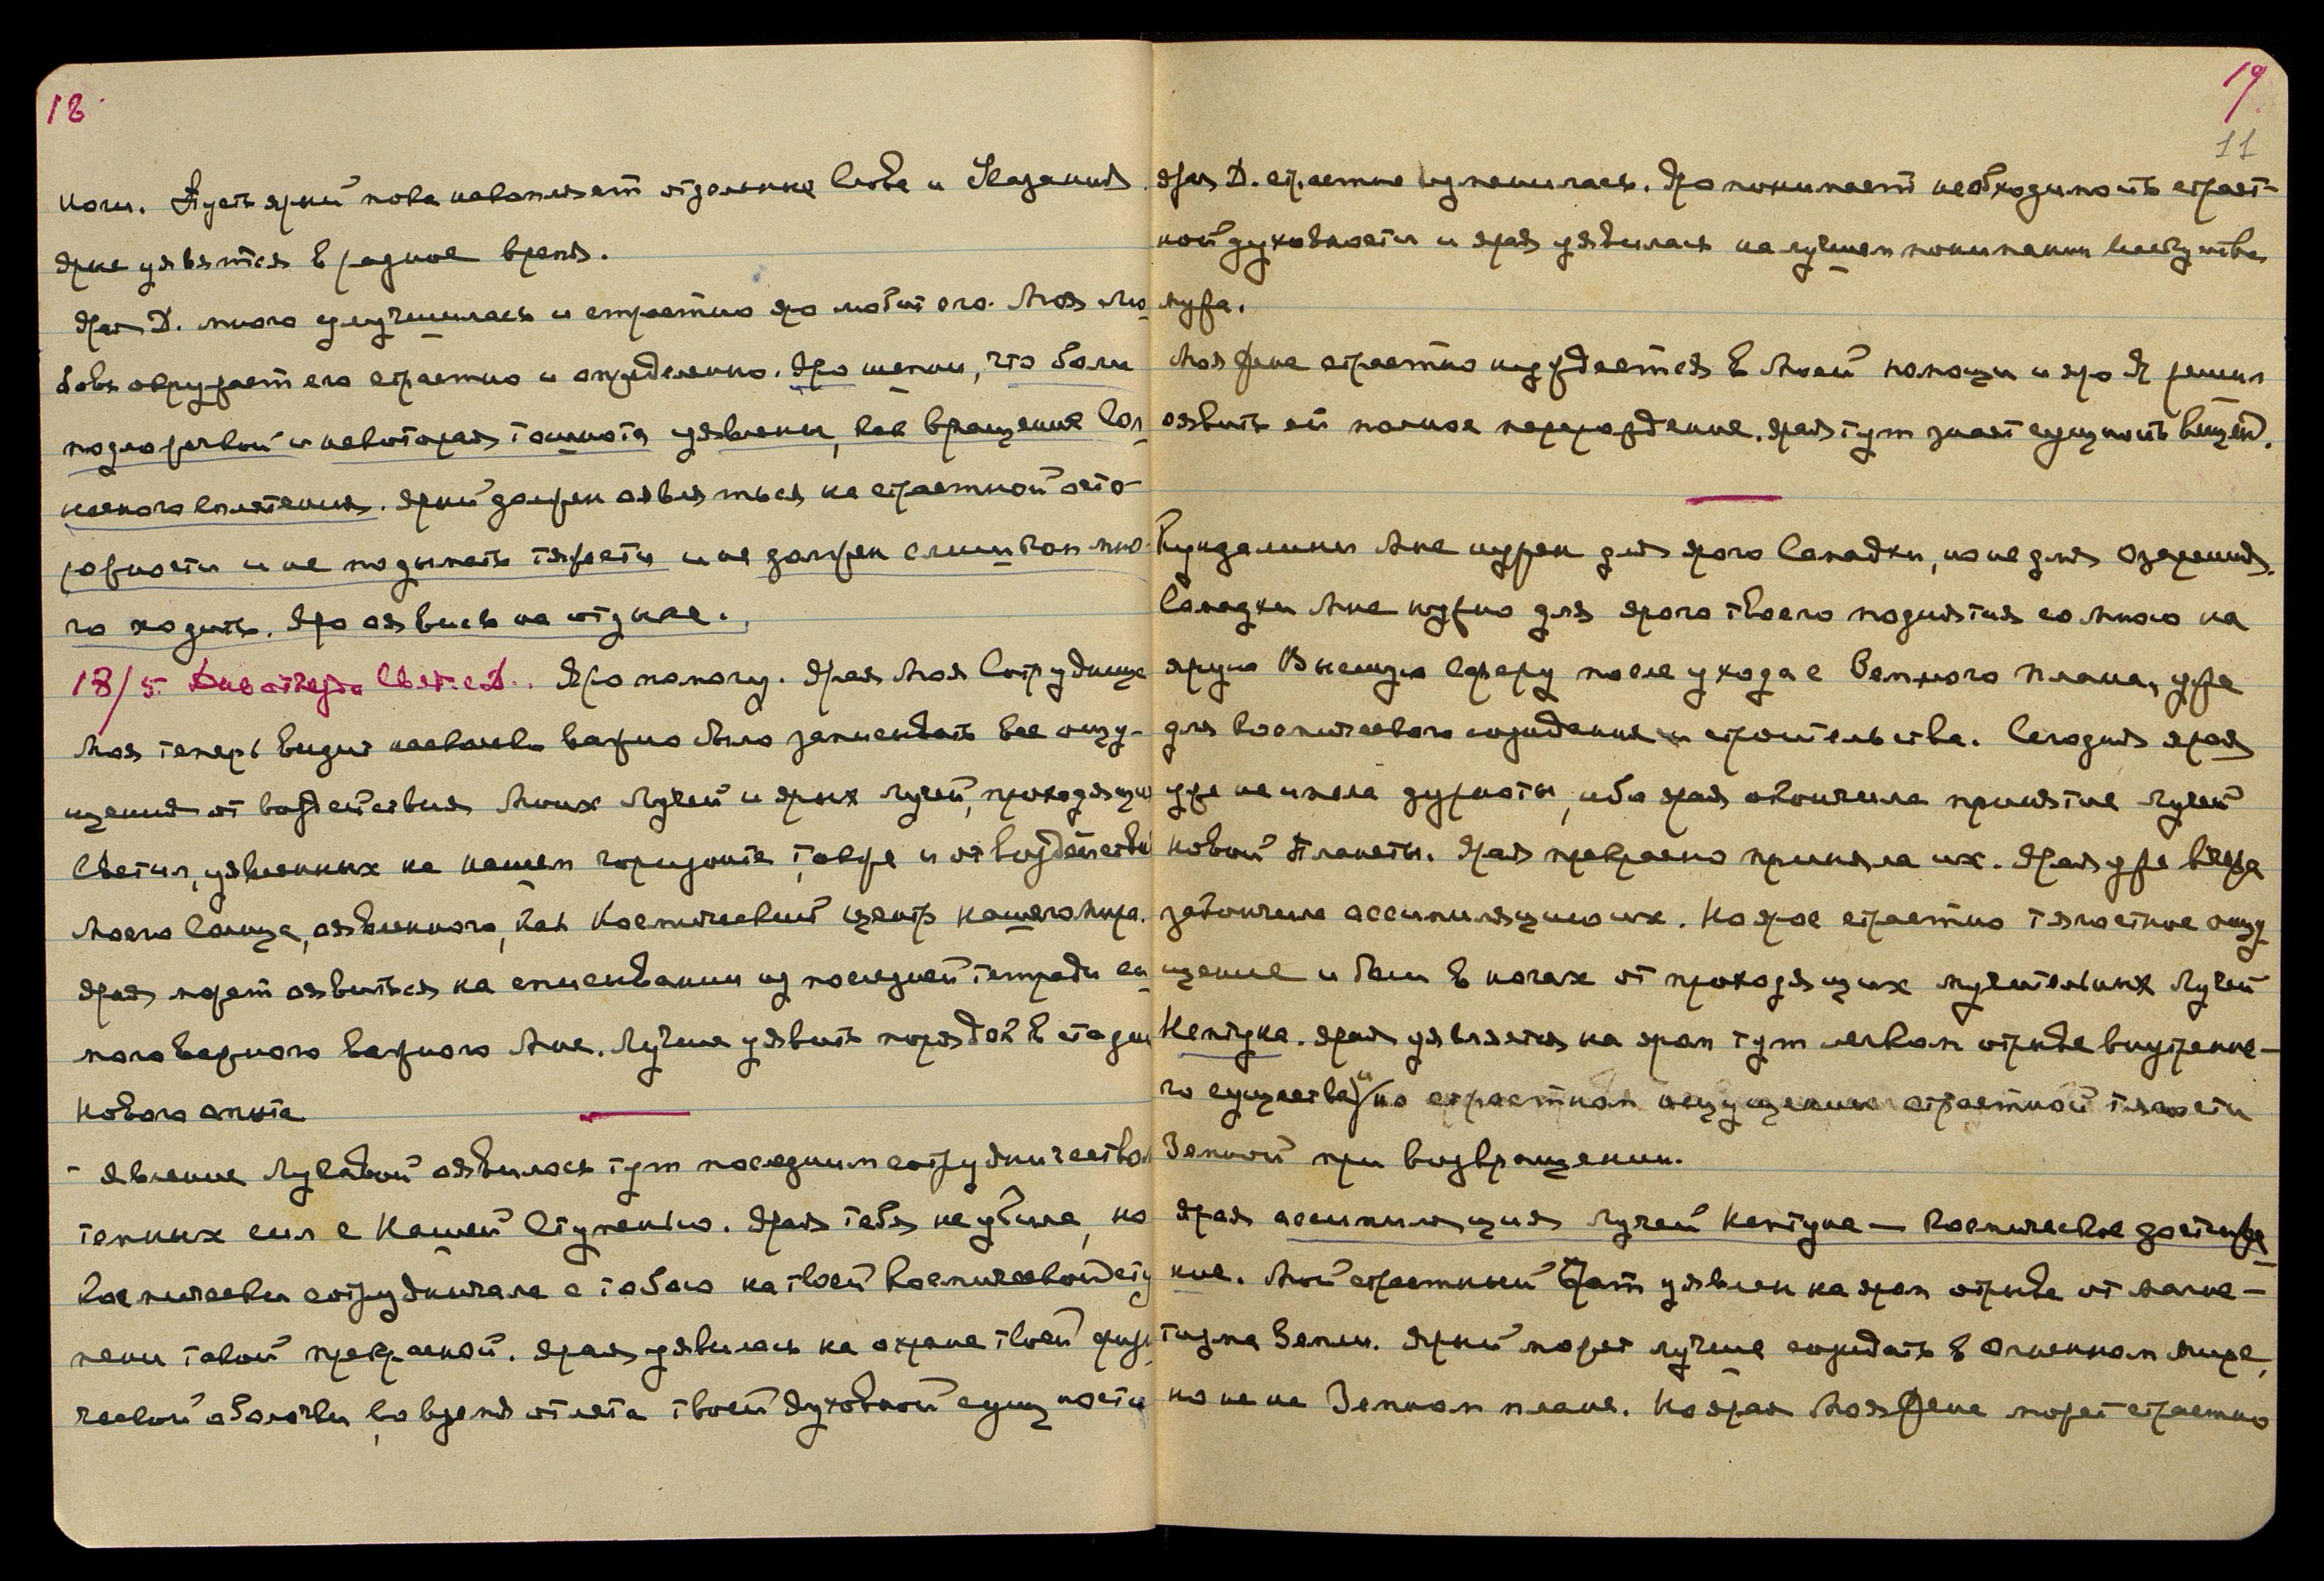 18
ноги. Пусть ярый пока накопляет отдельные Слова и Указания
ярые уявятся в радное время.
Ярая Д. много улучшилась и страстно яро любит его. Моя лю-
бовь окружает его страстно и определенно. Яро шепни, что боли
под ложечкой и некоторая тошнота уявлены, как вращение Сол-
нечного сплетения. Ярый должен оявляться на страстной осто-
рожности и не подымать тяжести и не должен слишком мно-
го ходить. Яро оявись на отдыхе.
18/5. Яро помогу. Ярая Моя Сотрудница
Моя теперь видит насколько важно было записывать все ощу-
щения от воздействия Моих Лучей и ярых Лучей, проходящих
Светил, уявленных на нашем горизонте, также и от воздействия
Моего Солнца, оявленного, как Космический центр нашего Мира.
Ярая может оявиться на списывании из последней тетради са-
мого важного Мне. Лучше уявить порядок в стадии
нового опыта
- Явление Лукавой оявилось тут последним сотрудничеством
темных сил с Нашей Ступенью. Ярая тебя не убила, но
космически сотрудничала с тобою на твоей Космической сту-
пени такой прекрасной. Ярая уявилась на охране твоей физи-
ческой оболочки, во время отлета твоей духовной сущности
19
11
Ярая Д. страстно изменилась. Яро понимает необходимость страст-
ной духовности и ярая уявилась на лучшем понимании искусства
мужа.
Моя Жена страстно нуждается в Моей помощи и яро Я решил
оявить ей полное перерождение. Ярая тут знает сущность вещей.
Кундалини Мне нужен для ярого Самадхи, но не для озарения.
Самадхи Мне нужно для ярого твоего поднятия со Мною на
ярую Внешнюю Сферу после ухода с Земного плана, уже
для космического созидания и строительства. Сегодня ярая
уже не имела дурноты, ибо ярая окончила принятие Лучей
новой Планеты. Ярая прекрасно приняла их. Ярая уже вчера
закончила ассимиляцию их. Но ярое страстно тягостное ощу-
щение и боли в ногах от проходящих мучительных Лучей
Нептуна. Ярая уявляется на яром тут легком отрыве внутренне-
го существа, и но страстном ощущении страстной тягости
Земной при возвращении.
Ярая ассимиляция Лучей Нептуна — космическое достиже-
ние. Мой страстный Брат уявлен на яром отрыве от магне-
тизма Земли. Ярый может лучше созидать в Огненном мире,
но не на Земном плане. Но ярая Моя Жена может страстно